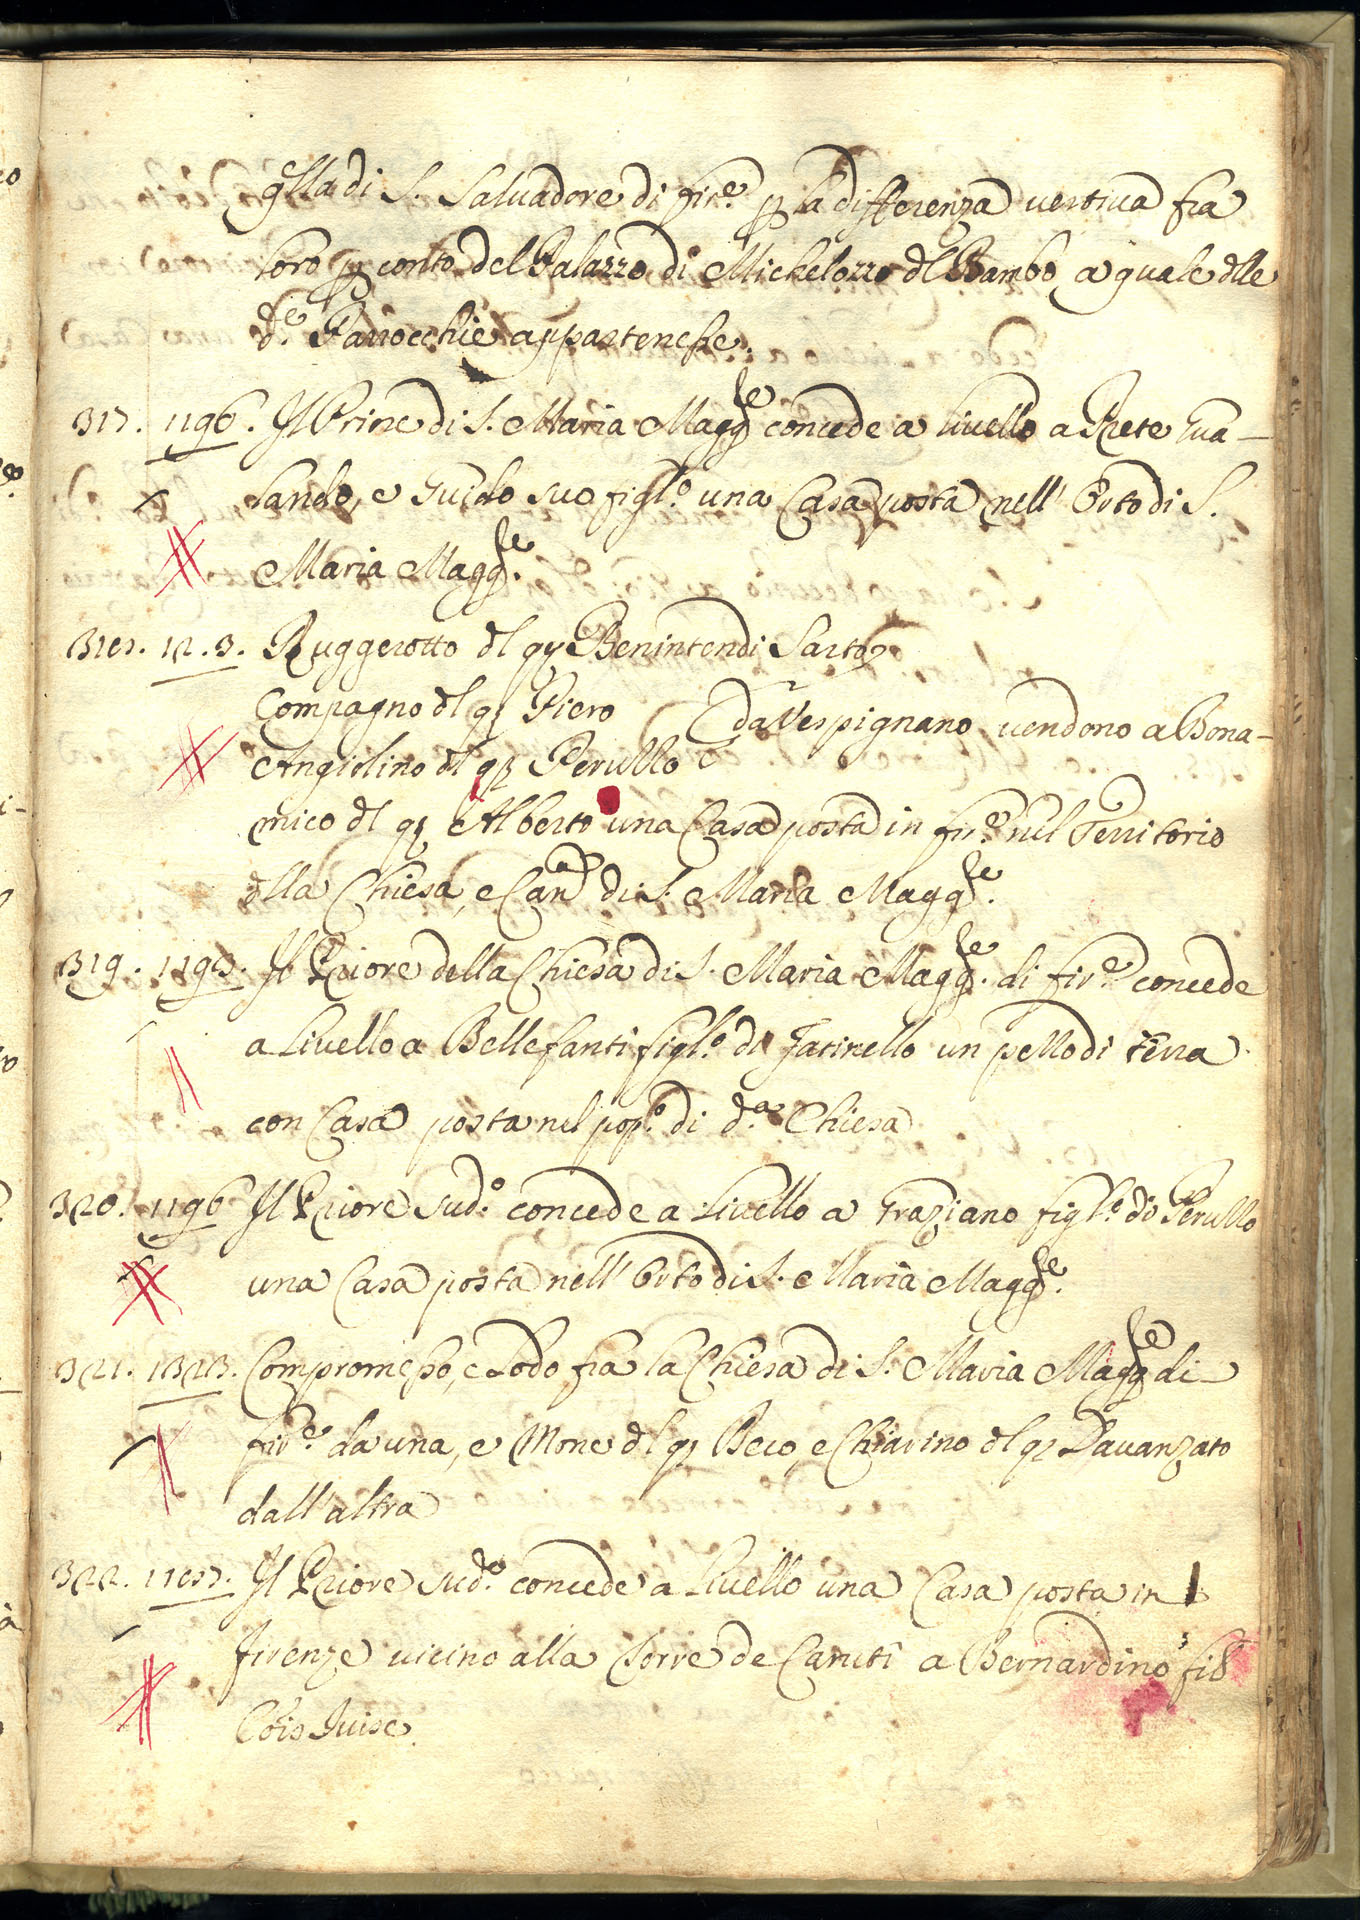 qlla di S. Salvadore di fir.e p la differenza vertiva fra
loro p conto del Palazzo di Michelozzo dl Bambo, a quale dlle
d.e Parrocchie appartenesse.
317. 1196. Il Prine di S. Maria Magg.re concede a livello a Rete Gua-
lando, e Guido suo figl.o una Casa posta nell' Orto di S.
Maria Magg.re
318. 12.3. Ruggerotto dl q Benintendi Sarto
Compagno dl q Piero
da Vespignano vendono a Bona-
Angiolino dl q Perullo
mico dl q Alberto una Casa posta in fir.e nel Territorio
dlla Chiesa, e Can.a di S. Maria Magg.re
319. 1193. Il Priore della Chiesa di S. Maria Magg.re di fir.e concede
a Livello a Bellefanti figl.o di Jatinello un pezzo di terra
con Casa posta nel pop.o di d.a Chiesa
320. 1196 Il Priore sud.o concede a Livello a Graziano figl.o di Perullo
una Casa posta nell' Orto di S. Maria Magg.re
321. 1323. Compromesso, e Lodo fra la Chiesa di S. Maria Magg.re di
fir.e da una, e Mone dl q Beco, e Chiarino dl q Davanzato
dall' altra
322. 1187. Il Priore sud.o concede a Livello una Casa posta in
firenze vicino alla Torre de Caruti a Bernardino fil